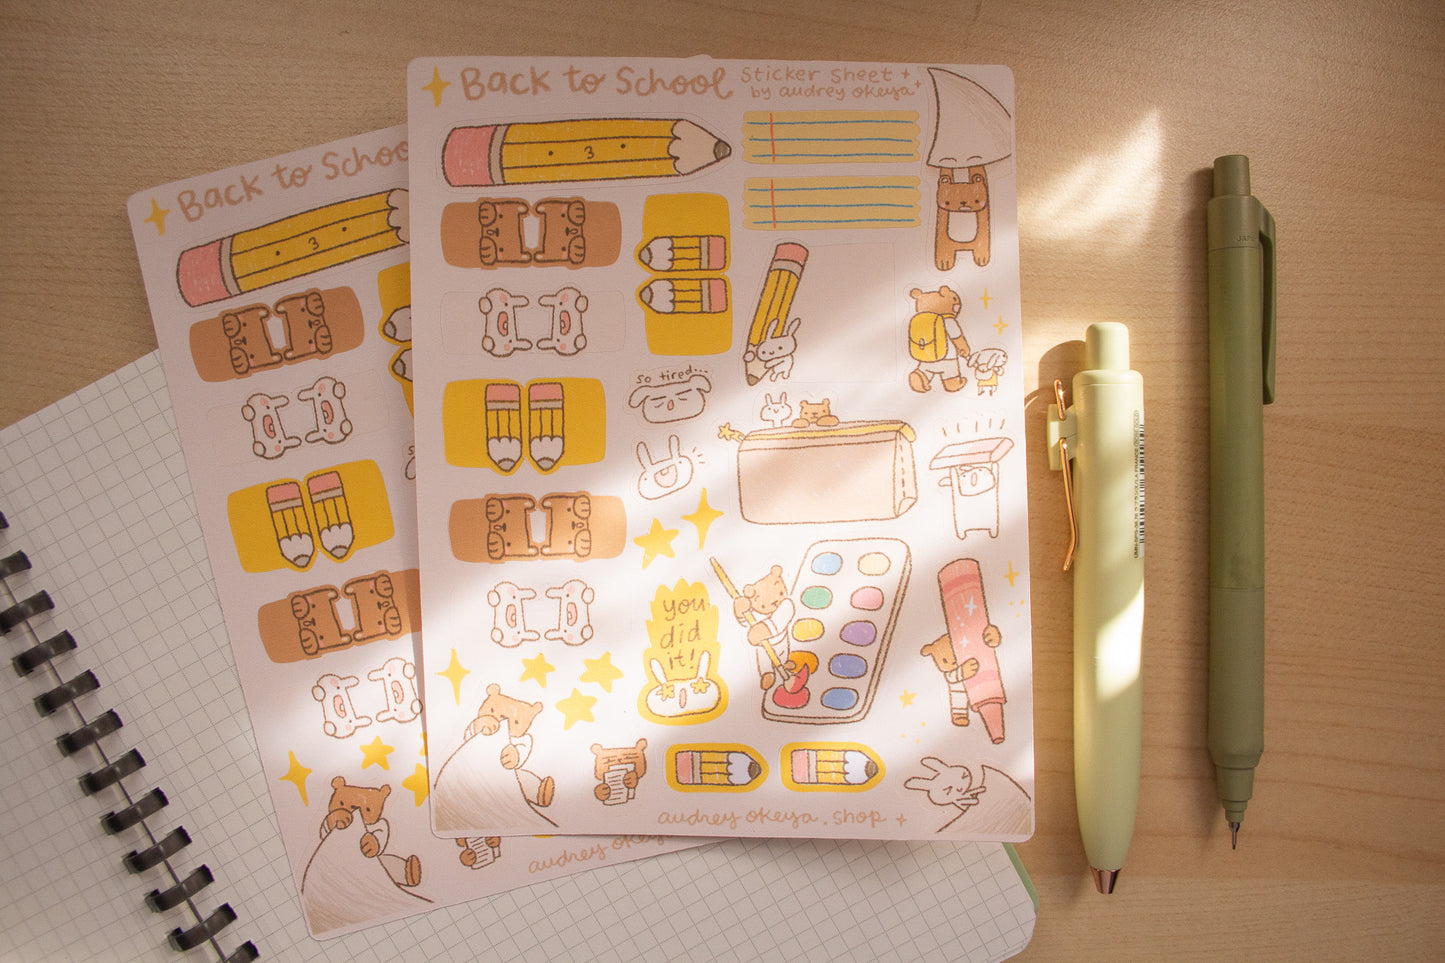 Back to School
Sticker Sheet
by audrey okeya
Back to Schoo
3
3
so tired...
you
did
it!
audrey okeya.shop
audrey okeya
JAPAN